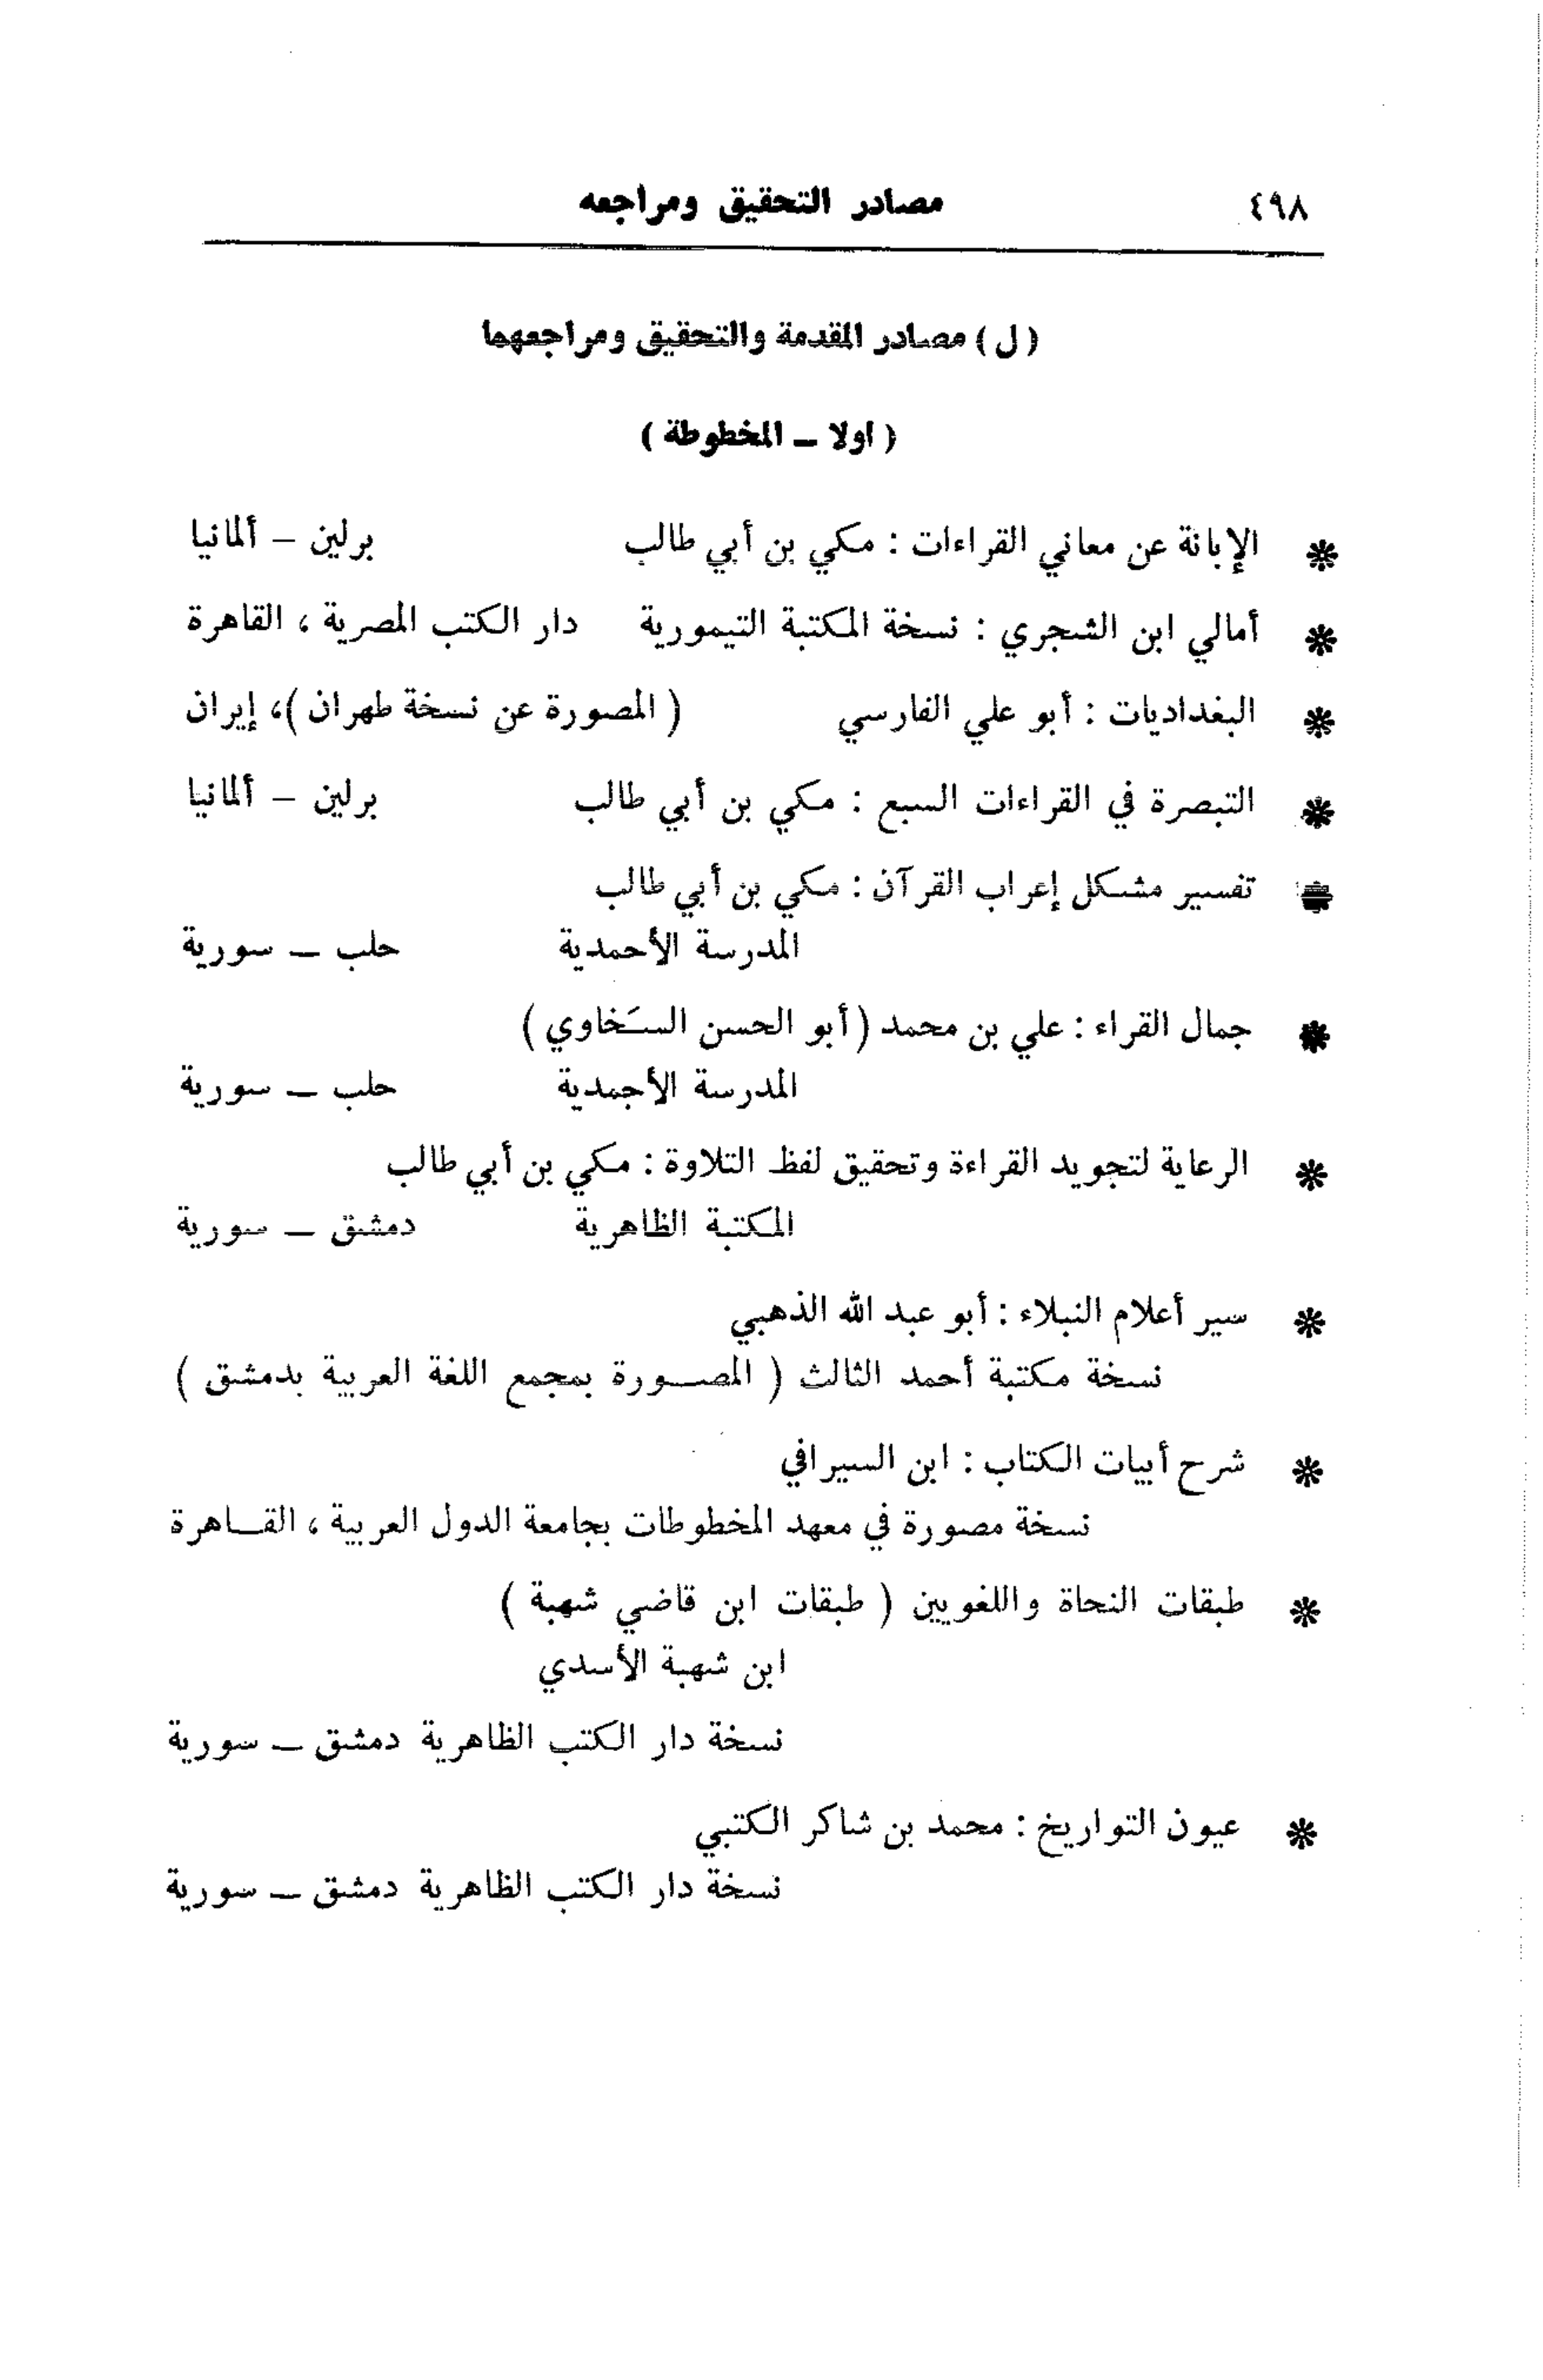 ٤٩٨ مصادر التحقيق ومراجعه
( ل ) مصادر المقدمة والتحقيق ومراجعهما
( اولا – المخطوطة )
* الإبانة عن معاني القراءات : مكي بن أبي طالب برلين – ألمانيا
* أمالي ابن الشجري : نسخة المكتبة التيمورية دار الكتب المصرية ، القاهرة
* البغداديات : أبو علي الفارسي ( المصورة عن نسخة طهران )، إيران
* التبصرة في القراءات السبع : مكي بن أبي طالب برلين – ألمانيا
* تفسير مشكل إعراب القرآن : مكي بن أبي طالب
المدرسة الأحمدية حلب – سورية
* جمال القراء : علي بن محمد ( أبو الحسن السَخاوي )
المدرسة الأجمدية حلب – سورية
* الرعاية لتجويد القراءة وتحقيق لفظ التلاوة : مكي بن أبي طالب
المكتبة الظاهرية دمشق – سورية
* سير أعلام النبلاء : أبو عبد الله الذهبي
نسخة مكتبة أحمد الثالث ( المصـــورة بمجمع اللغة العربية بدمشق )
* شرح أبيات الكتاب : ابن السيرافي
نسخة مصورة في معهد المخطوطات بجامعة الدول العربية ، القــاهرة
* طبقات النحاة واللغويين ( طبقات ابن قاضي شهبة )
ابن شهبة الأسدي
نسخة دار الكتب الظاهرية دمشق – سورية
* عيون التواريخ : محمد بن شاكر الكتبي
نسخة دار الكتب الظاهرية دمشق – سورية